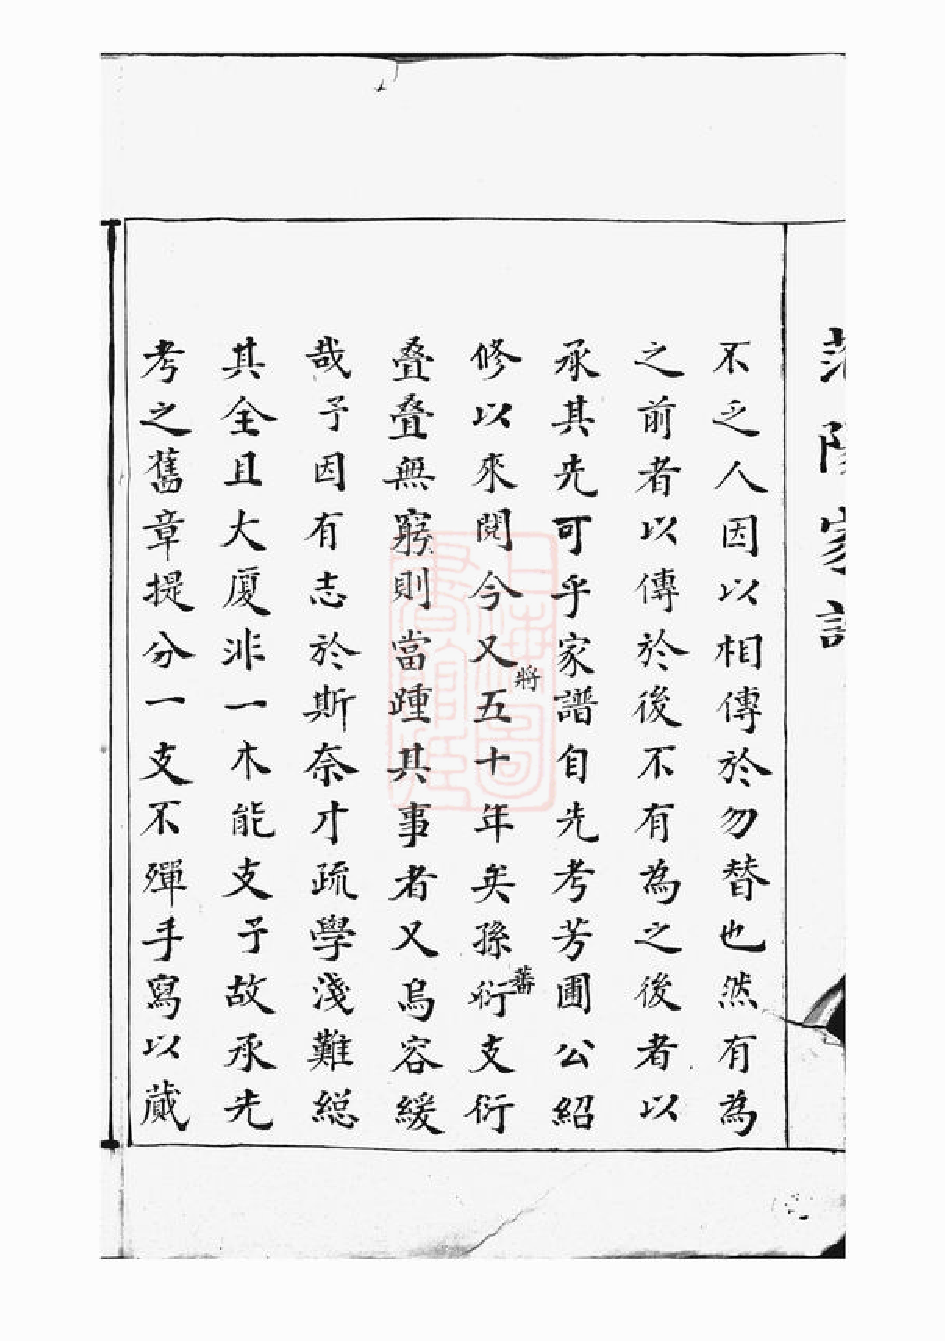 范陽家譜
不乏人因以相傳於勿替也然有為
之前者以傳於後不有為之後者以
承其先可乎家譜自先考芳圃公紹
修以來閱今又將五十年矣孫衍蕃支衍
叠叠無窮則當踵其事者又烏容緩
哉予因有志於斯奈才疏學淺難総
其全且大廈非一木能支予故承先
考之舊章提分一支不殫手寫以蔵
上海圖書館藏